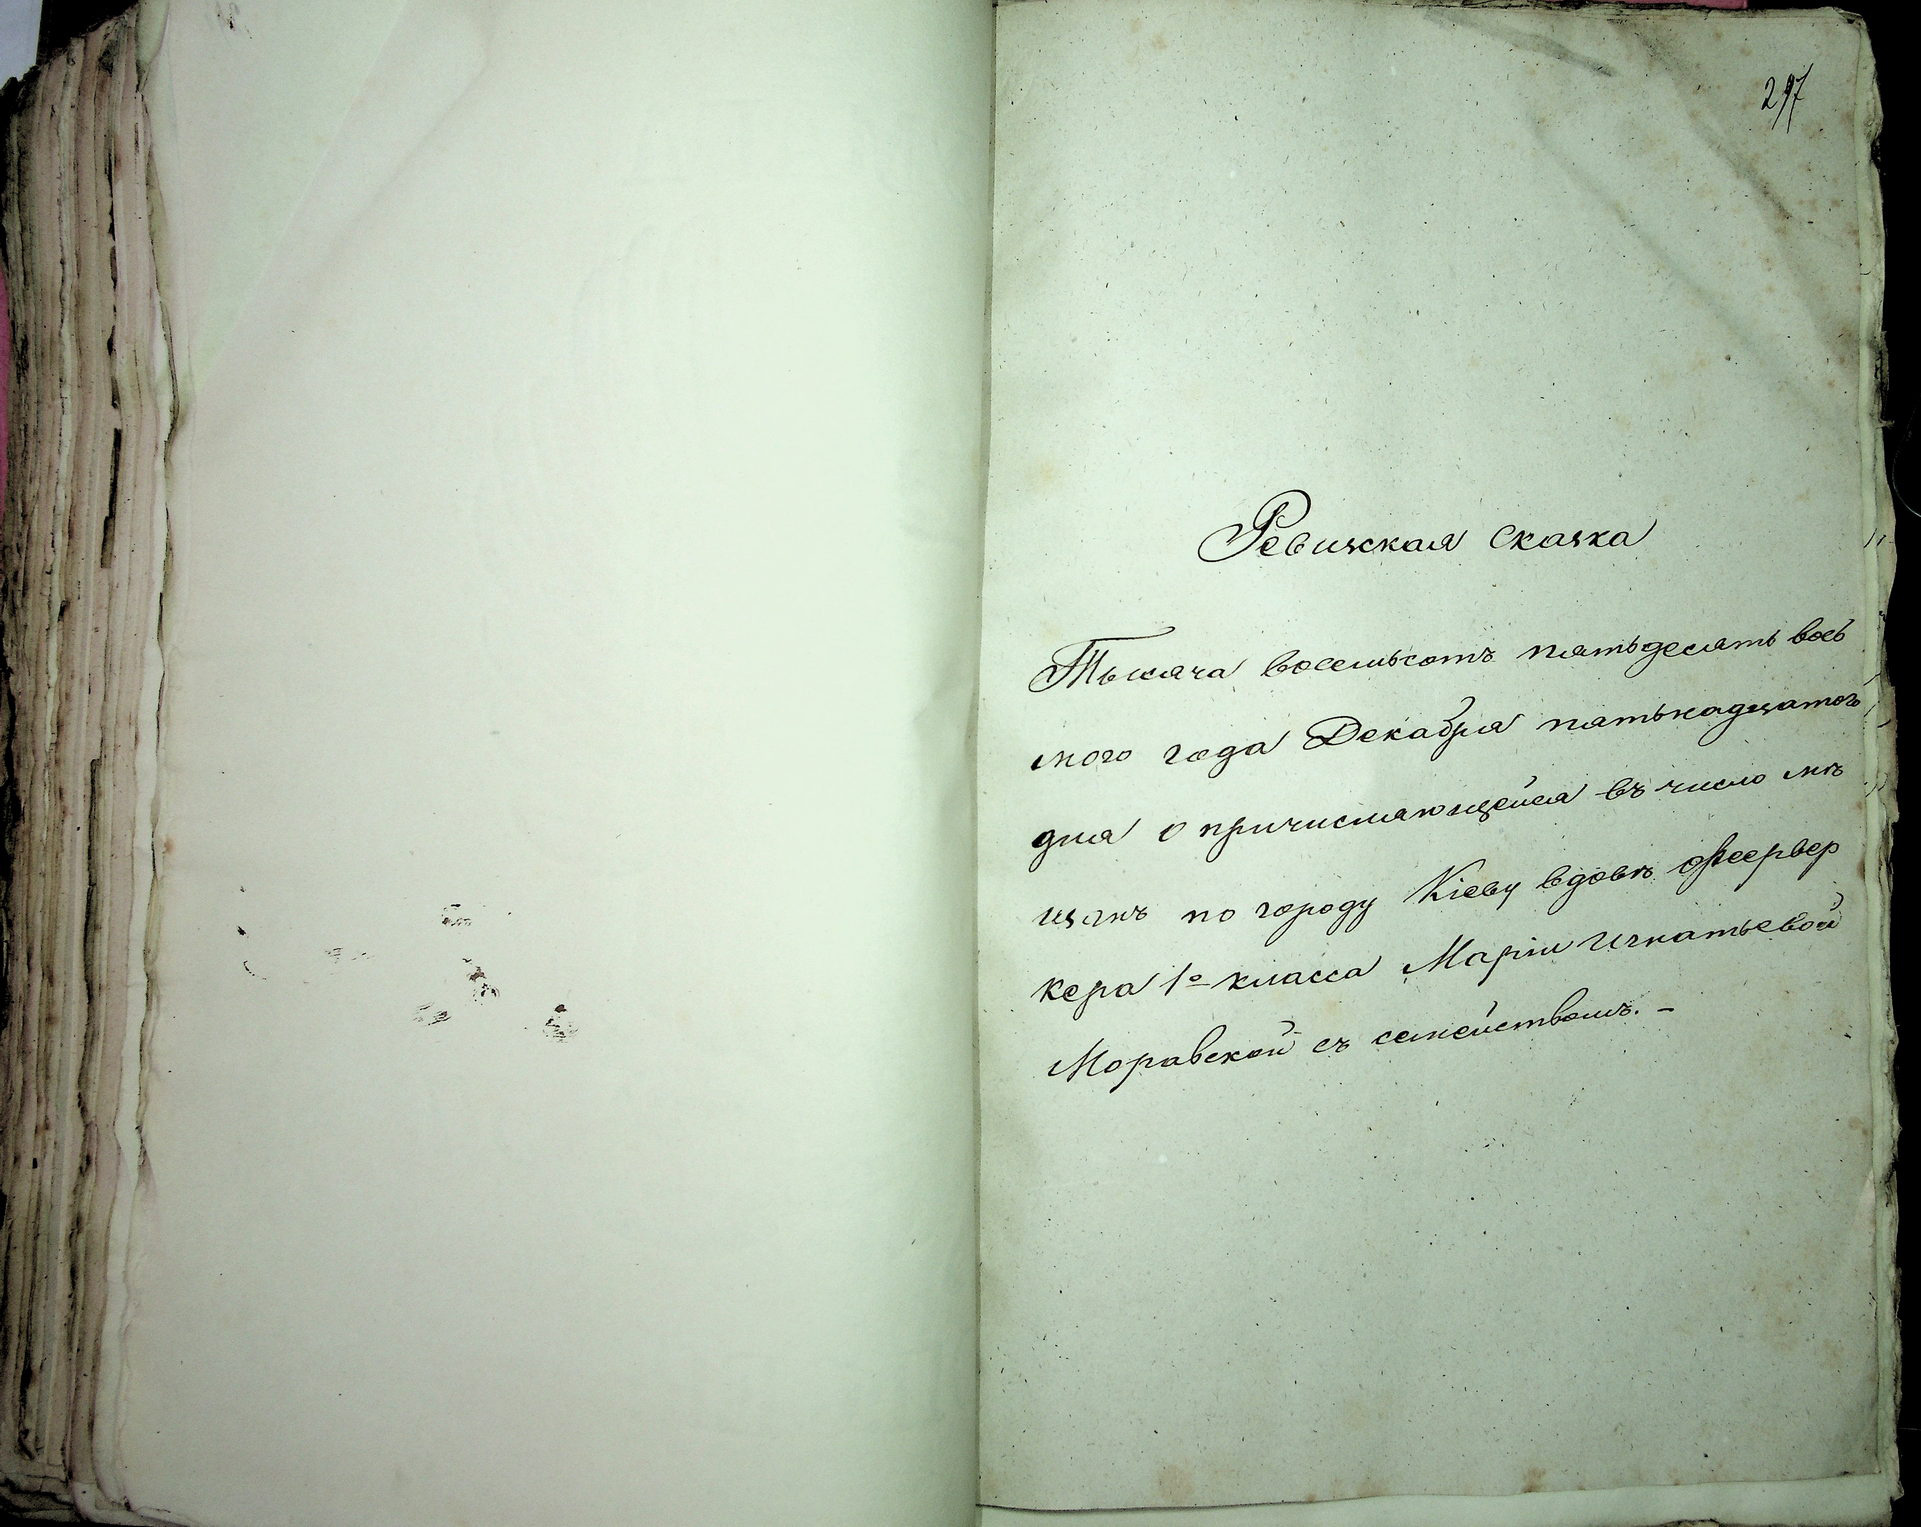 297
Ревизская сказка
Тысяча восемьсотъ пятьдесятъ вось
мого года Декабря пятьнадцатого
дня о причисляющейся въ число мѣ
щанъ по городу Кіеву вдовѣ фееервер
кера 1º класса Маріи Игнатьевой
Моравской съ семействомъ. -